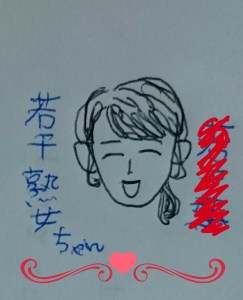 若干熟女ちゃん